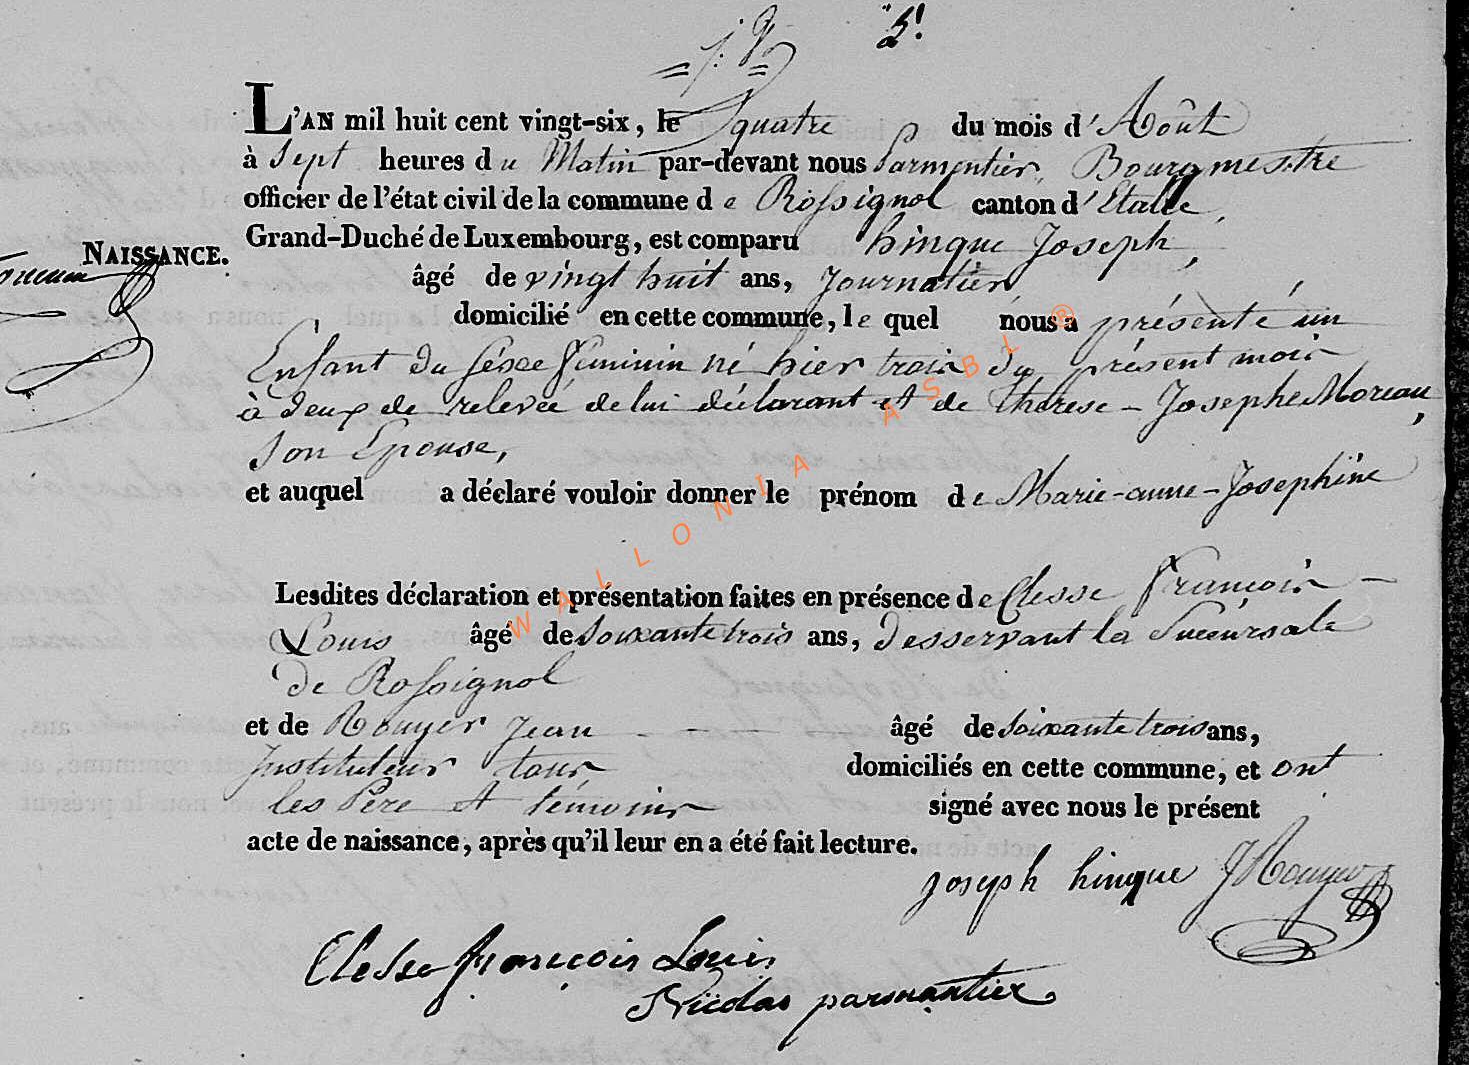 5.
L'AN mil huit cent vingt-six, le quatre du mois d'Août
à Sept heures du Matin par-devant nous Parmentier, Bourgmestre
officier de l'état civil de la commune de Rossignol canton d'Etalle,
Grand-Duché de Luxembourg, est comparu hinque Joseph,
NAISSANCE.
âgé de vingt huit ans, Journalier
domicilié en cette commune, le quel nous a présenté un
Enfant du Séxe féminin né hier trois du présent mois
à deux de relevée de lui déclarant et de Therese - Josephe Moreau,
Son Epouse,
et auquel a déclaré vouloir donner le prénom de Marie-anne-Josephine
Lesdites déclaration et présentation faites en présence de Clesse François
Louis âgé de soixante trois ans, desservant la Succursale
de Rossignol
et de Rouyer Jean âgé de soixante trois ans,
Instituteur tous domiciliés en cette commune, et ont
les Père et témoins signé avec nous le présent
acte de naissance, après qu'il leur en a été fait lecture.
Joseph hinque J Rouyer
Clesse françois Louis
Nicolas parmantier
WALLONIA ASBL ®